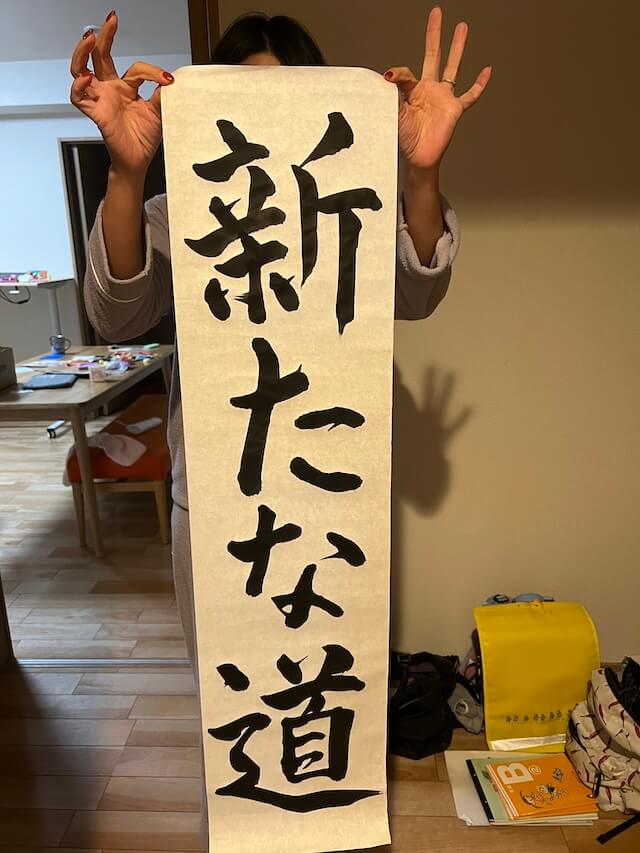 新たな道
B